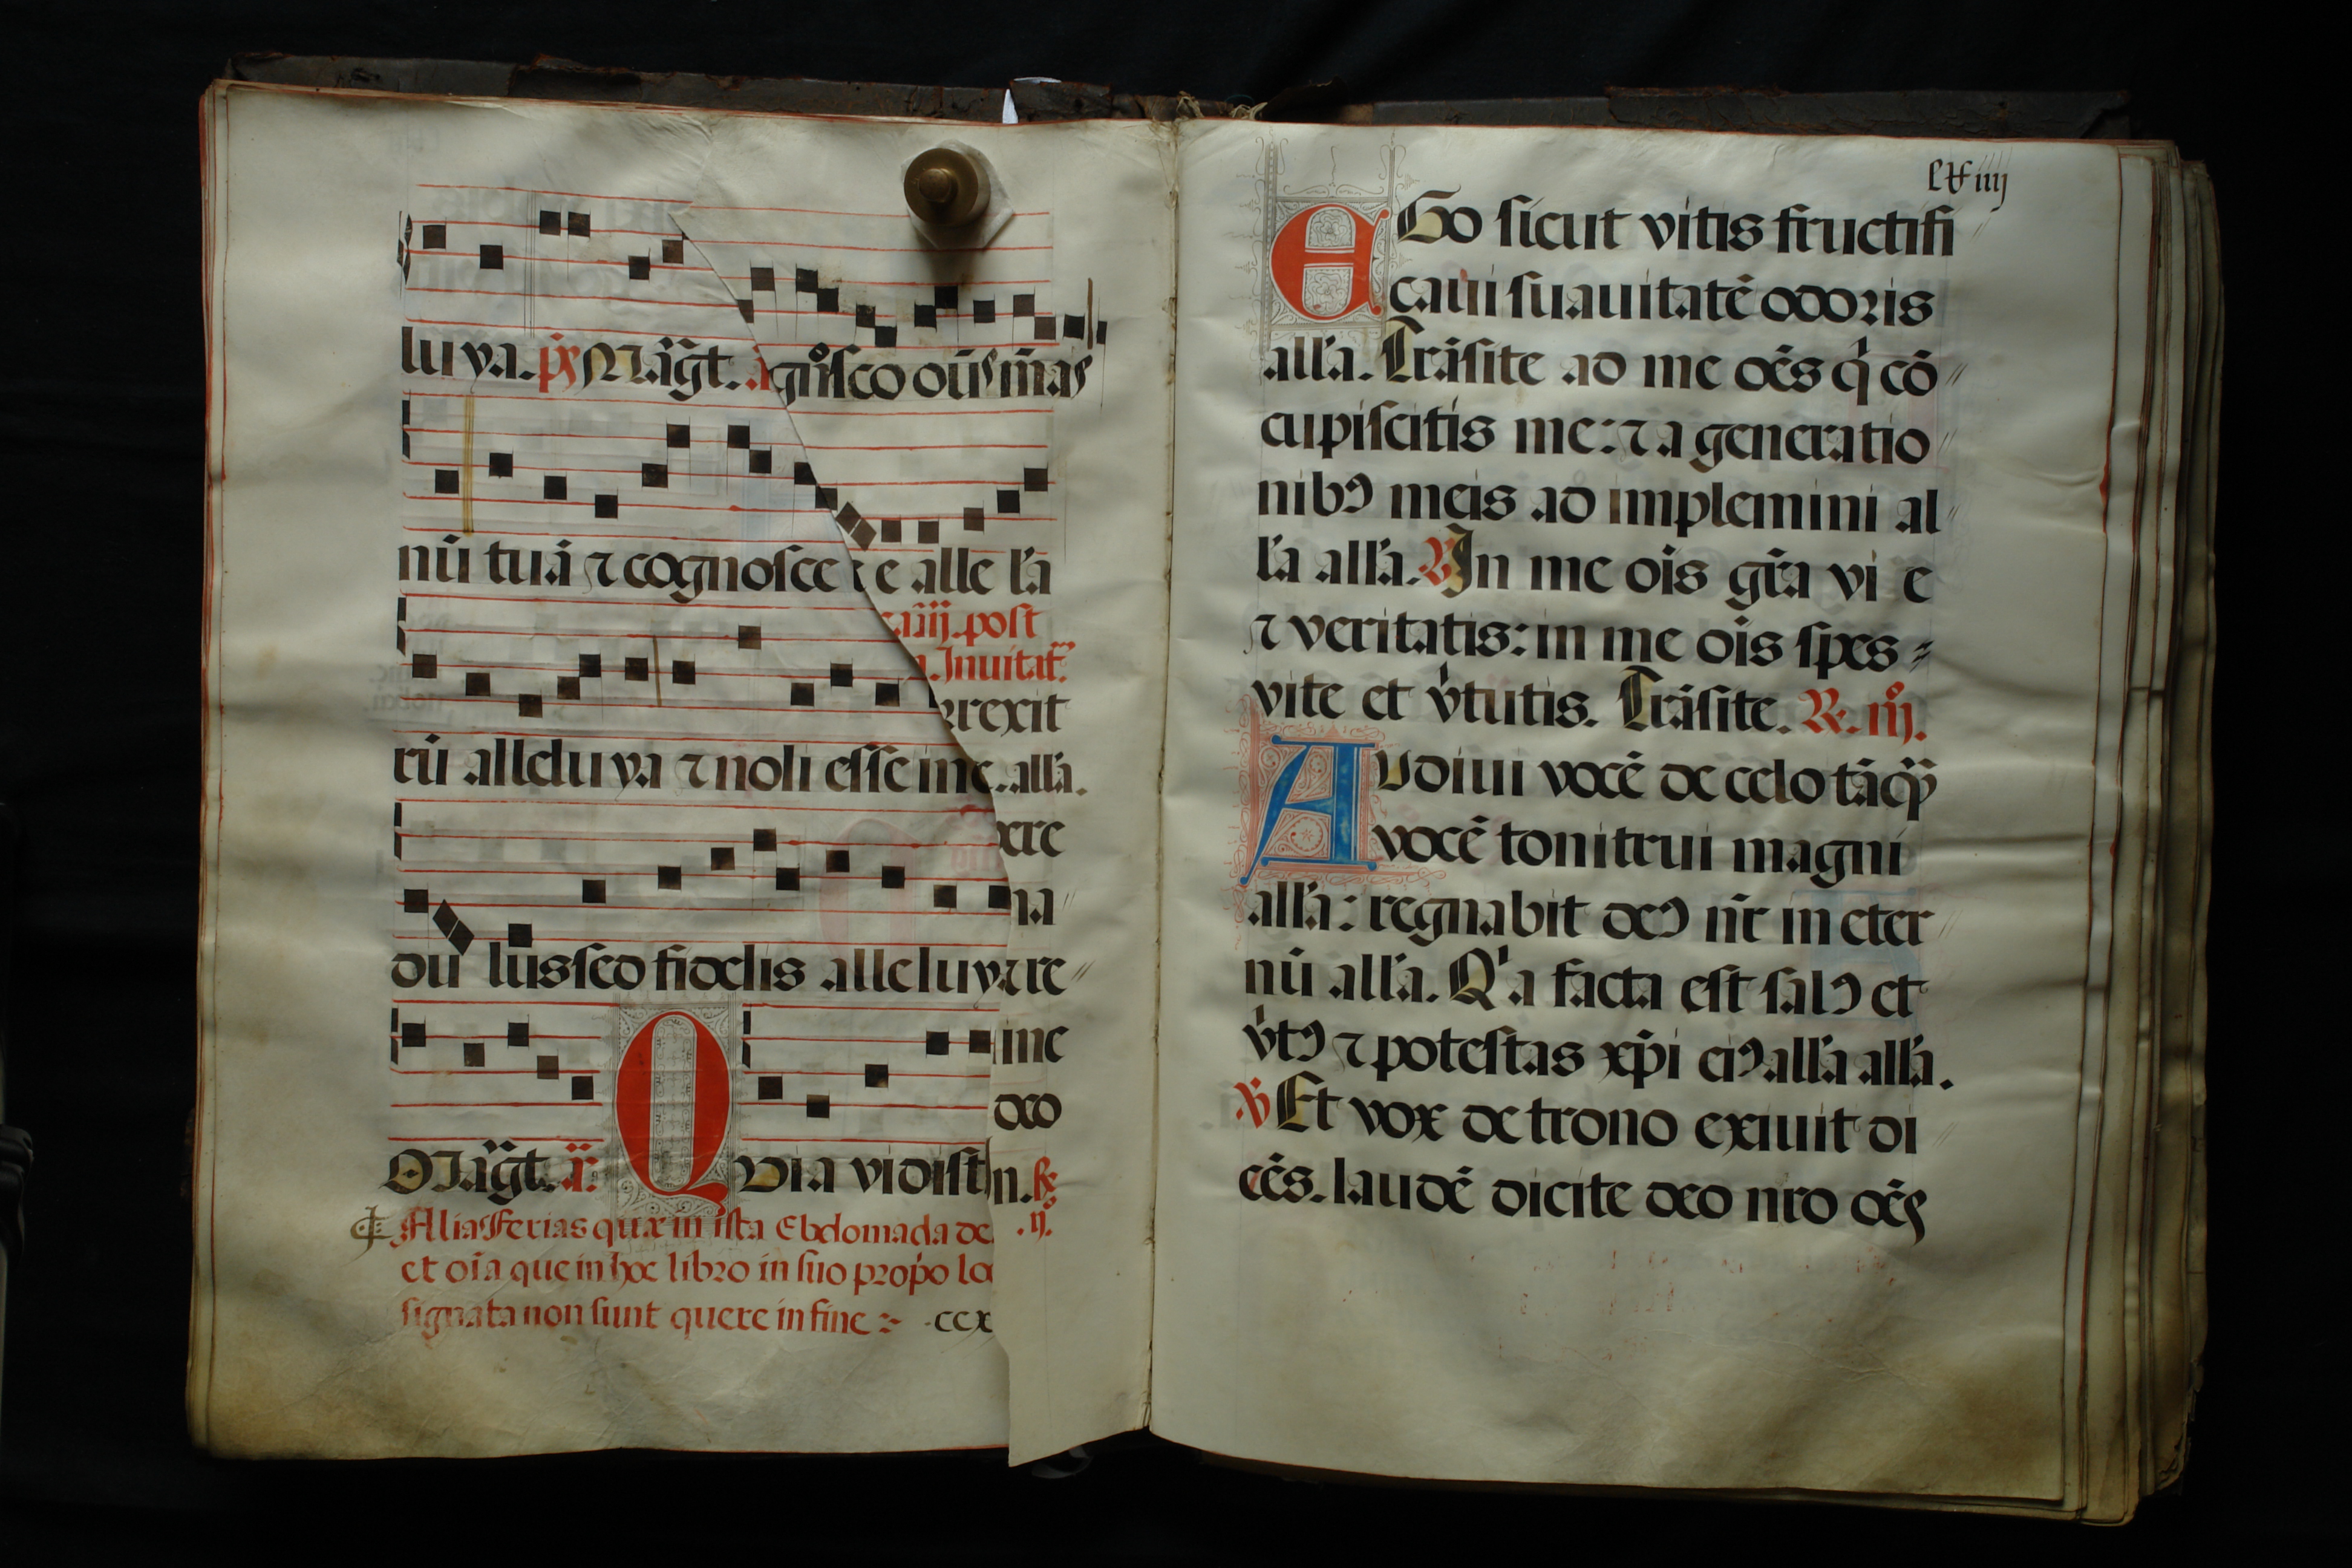 luya. p̄s Māgt. a gn̄sco oūs m̄as
nū tuā ⁊ cognosce e alle l'a
post
Inuitat̄.
rrexit
rū alleluya ⁊ noli esse inc. all'a.
xre
na
du lus sed fidelis alleluya re
me
deo
Māgt. a. QVia vidist n.
Alia Ferias quæ in ista Ebdomada de
.ij.
et oīa que in hoc libro in suo prop̄o lo
signata non sunt quere in fine :- .ccx
lxiiij
EGo sicut vitis fructifi
caui suauitatē odoris
all'a. Trāsite ad me oēs q̄ cō
cupiscitis me: ⁊ a generatio
nibꝯ meis ad implemini al
l'a all'a. ℣ In me oīs gr̄a vi e
⁊ veritatis: in me oīs spes
vite et v̄tutis. Trāsite. ℟. iij.
AVdiui vocē de celo tāqꝫ
vocē tonitrui magni
all'a: regnabit deꝯ nr̄ in eter
nū all'a. Q'a facta est salꝯ et
v̄tꝯ ⁊ potestas xp̄i eiꝯ all'a all'a.
℣ Et vox de trono exiuit di
cēs. laudē dicite deo nro oēs